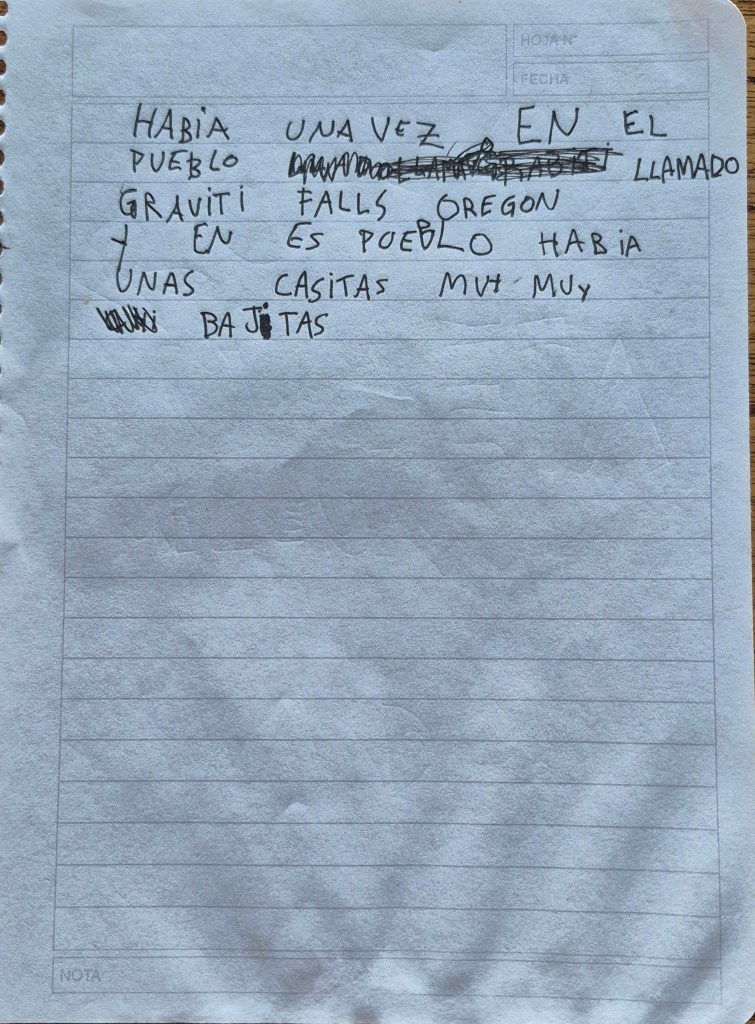 HOJA N°
FECHA
HABiA UNA VEZ EN EL
PUEBLO LLAMADO
GRAViTi FALLS OREGON
Y EN ES PUEBLO HABiA
UNAS CASiTAS MUY MUY
BAJiTAS
NOTA